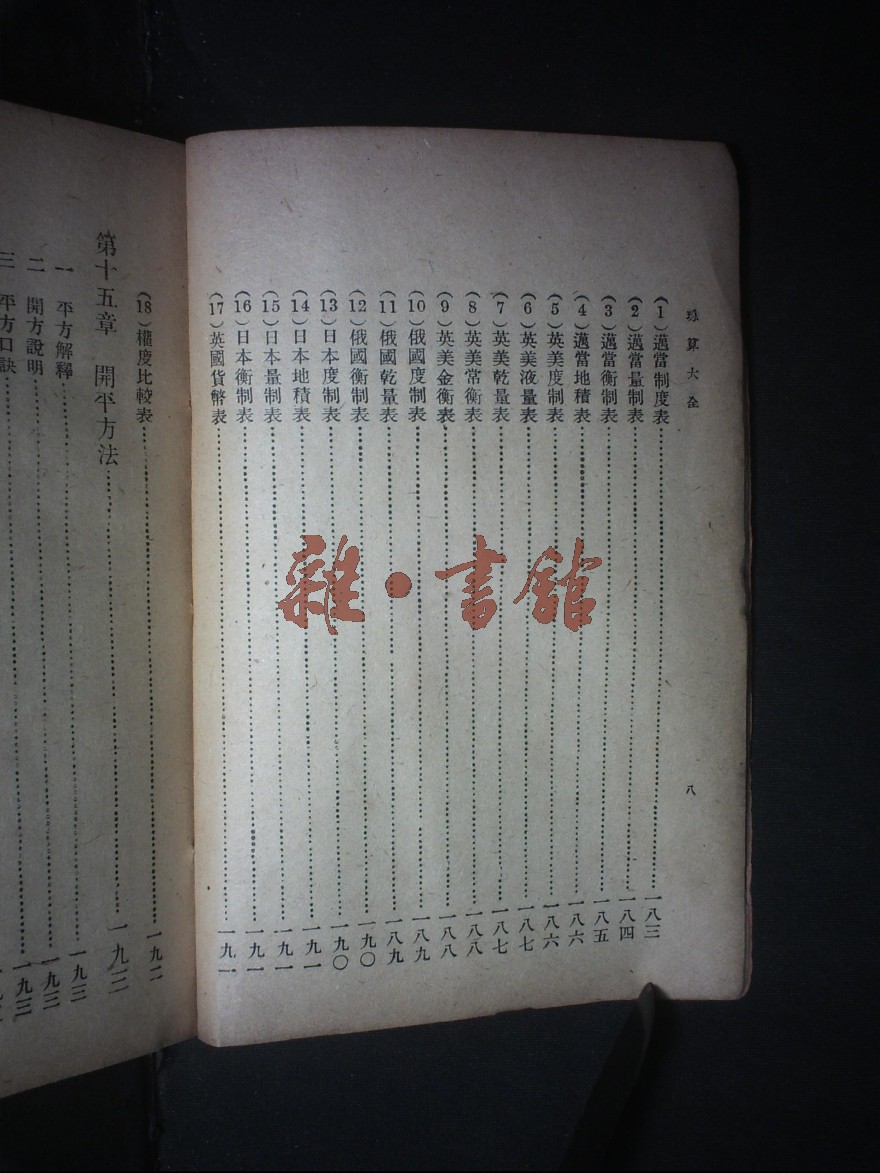 珠算大全 八
(1)邁當制度表……一八三
(2)邁當量制表……一八四
(3)邁當衡制表……一八五
(4)邁當地積表……一八六
(5)英美度制表……一八六
(6)英美液量表……一八七
(7)英美乾量表……一八七
(8)英美常衡表……一八八
(9)英美金衡表……一八八
(10)俄國度制表……一八九
(11)俄國乾量表……一八九
(12)俄國衡制表……一九〇
(13)日本度制表……一九〇
(14)日本地積表……一九一
(15)日本量制表……一九一
(16)日本衡制表……一九一
(17)英國貨幣表……一九一
(18)權度比較表……一九二
第十五章 開平方法……一九三
一 平方解釋……一九三
二 開方說明……一九三
三 平方口訣……一九三
雜·書館